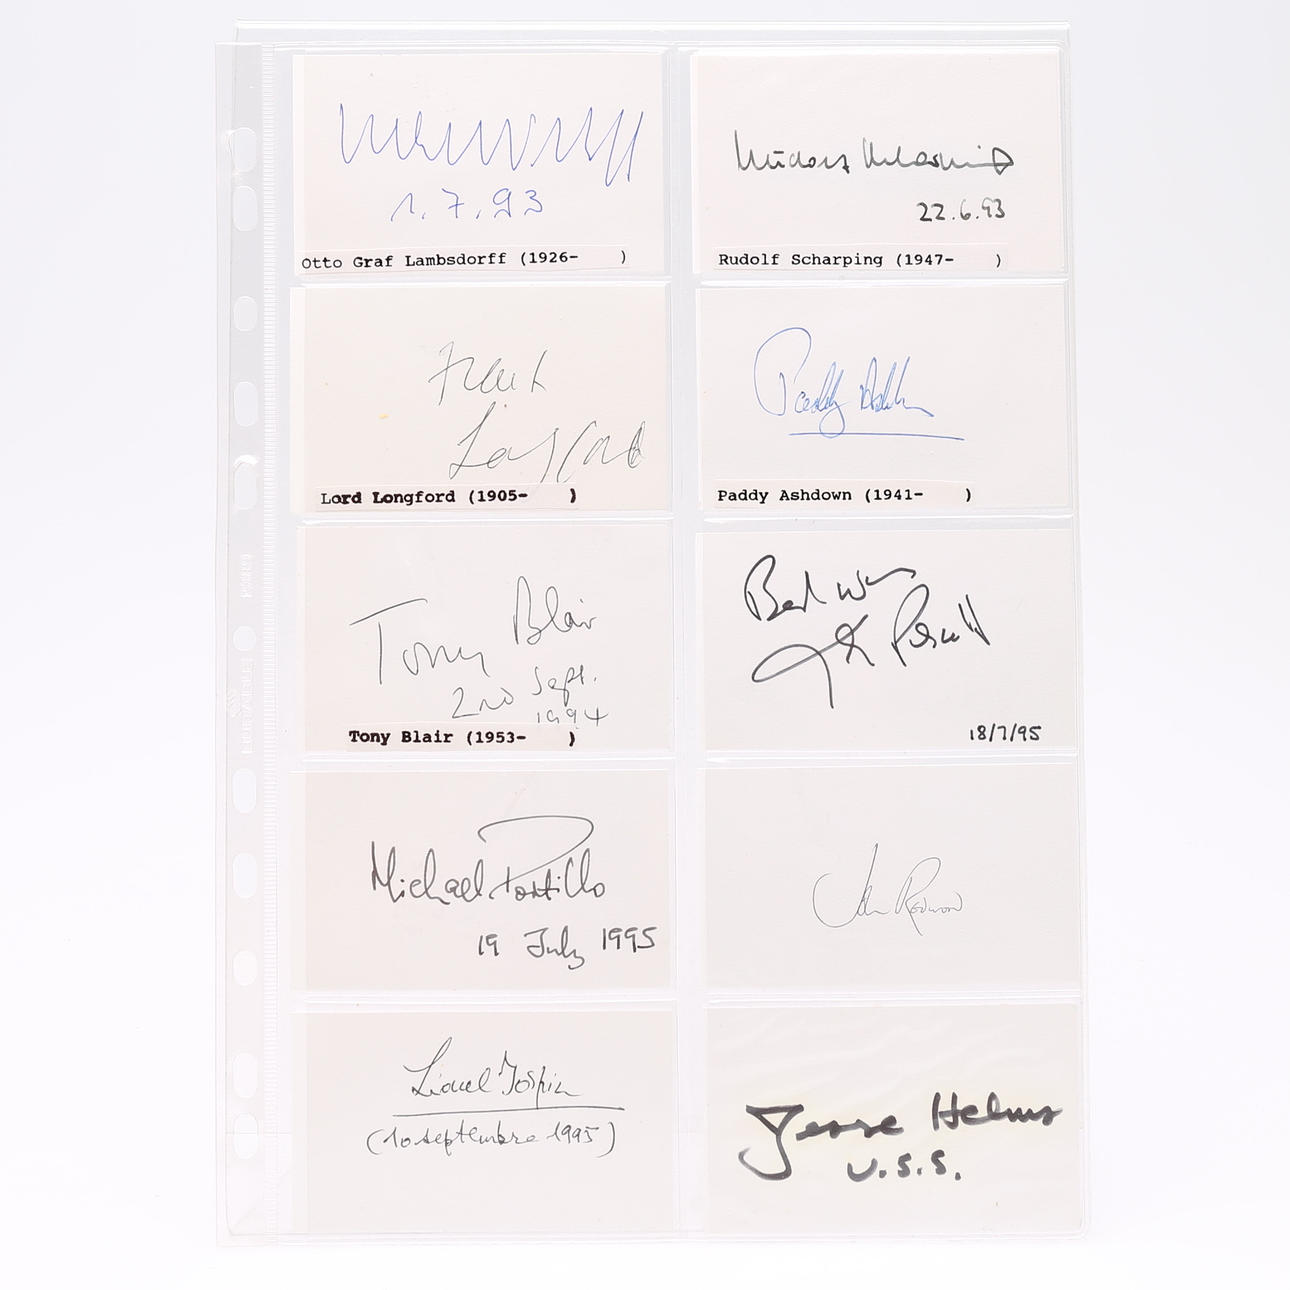 1.7.93
Otto Graf Lambsdorff (1926-      )
Rudolf Scharping
22.6.93
Rudolf Scharping (1947-      )
Frank
Longford
Lord Longford (1905-      )
Paddy Ashdown
Paddy Ashdown (1941-      )
Tony Blair
2nd Sept.
1994
Tony Blair (1953-      )
Best
18/7/95
Michael Portillo
19 July 1995
John Redwood
Lionel Jospin
(10 septembre 1995)
Jesse Helms
U.S.S.